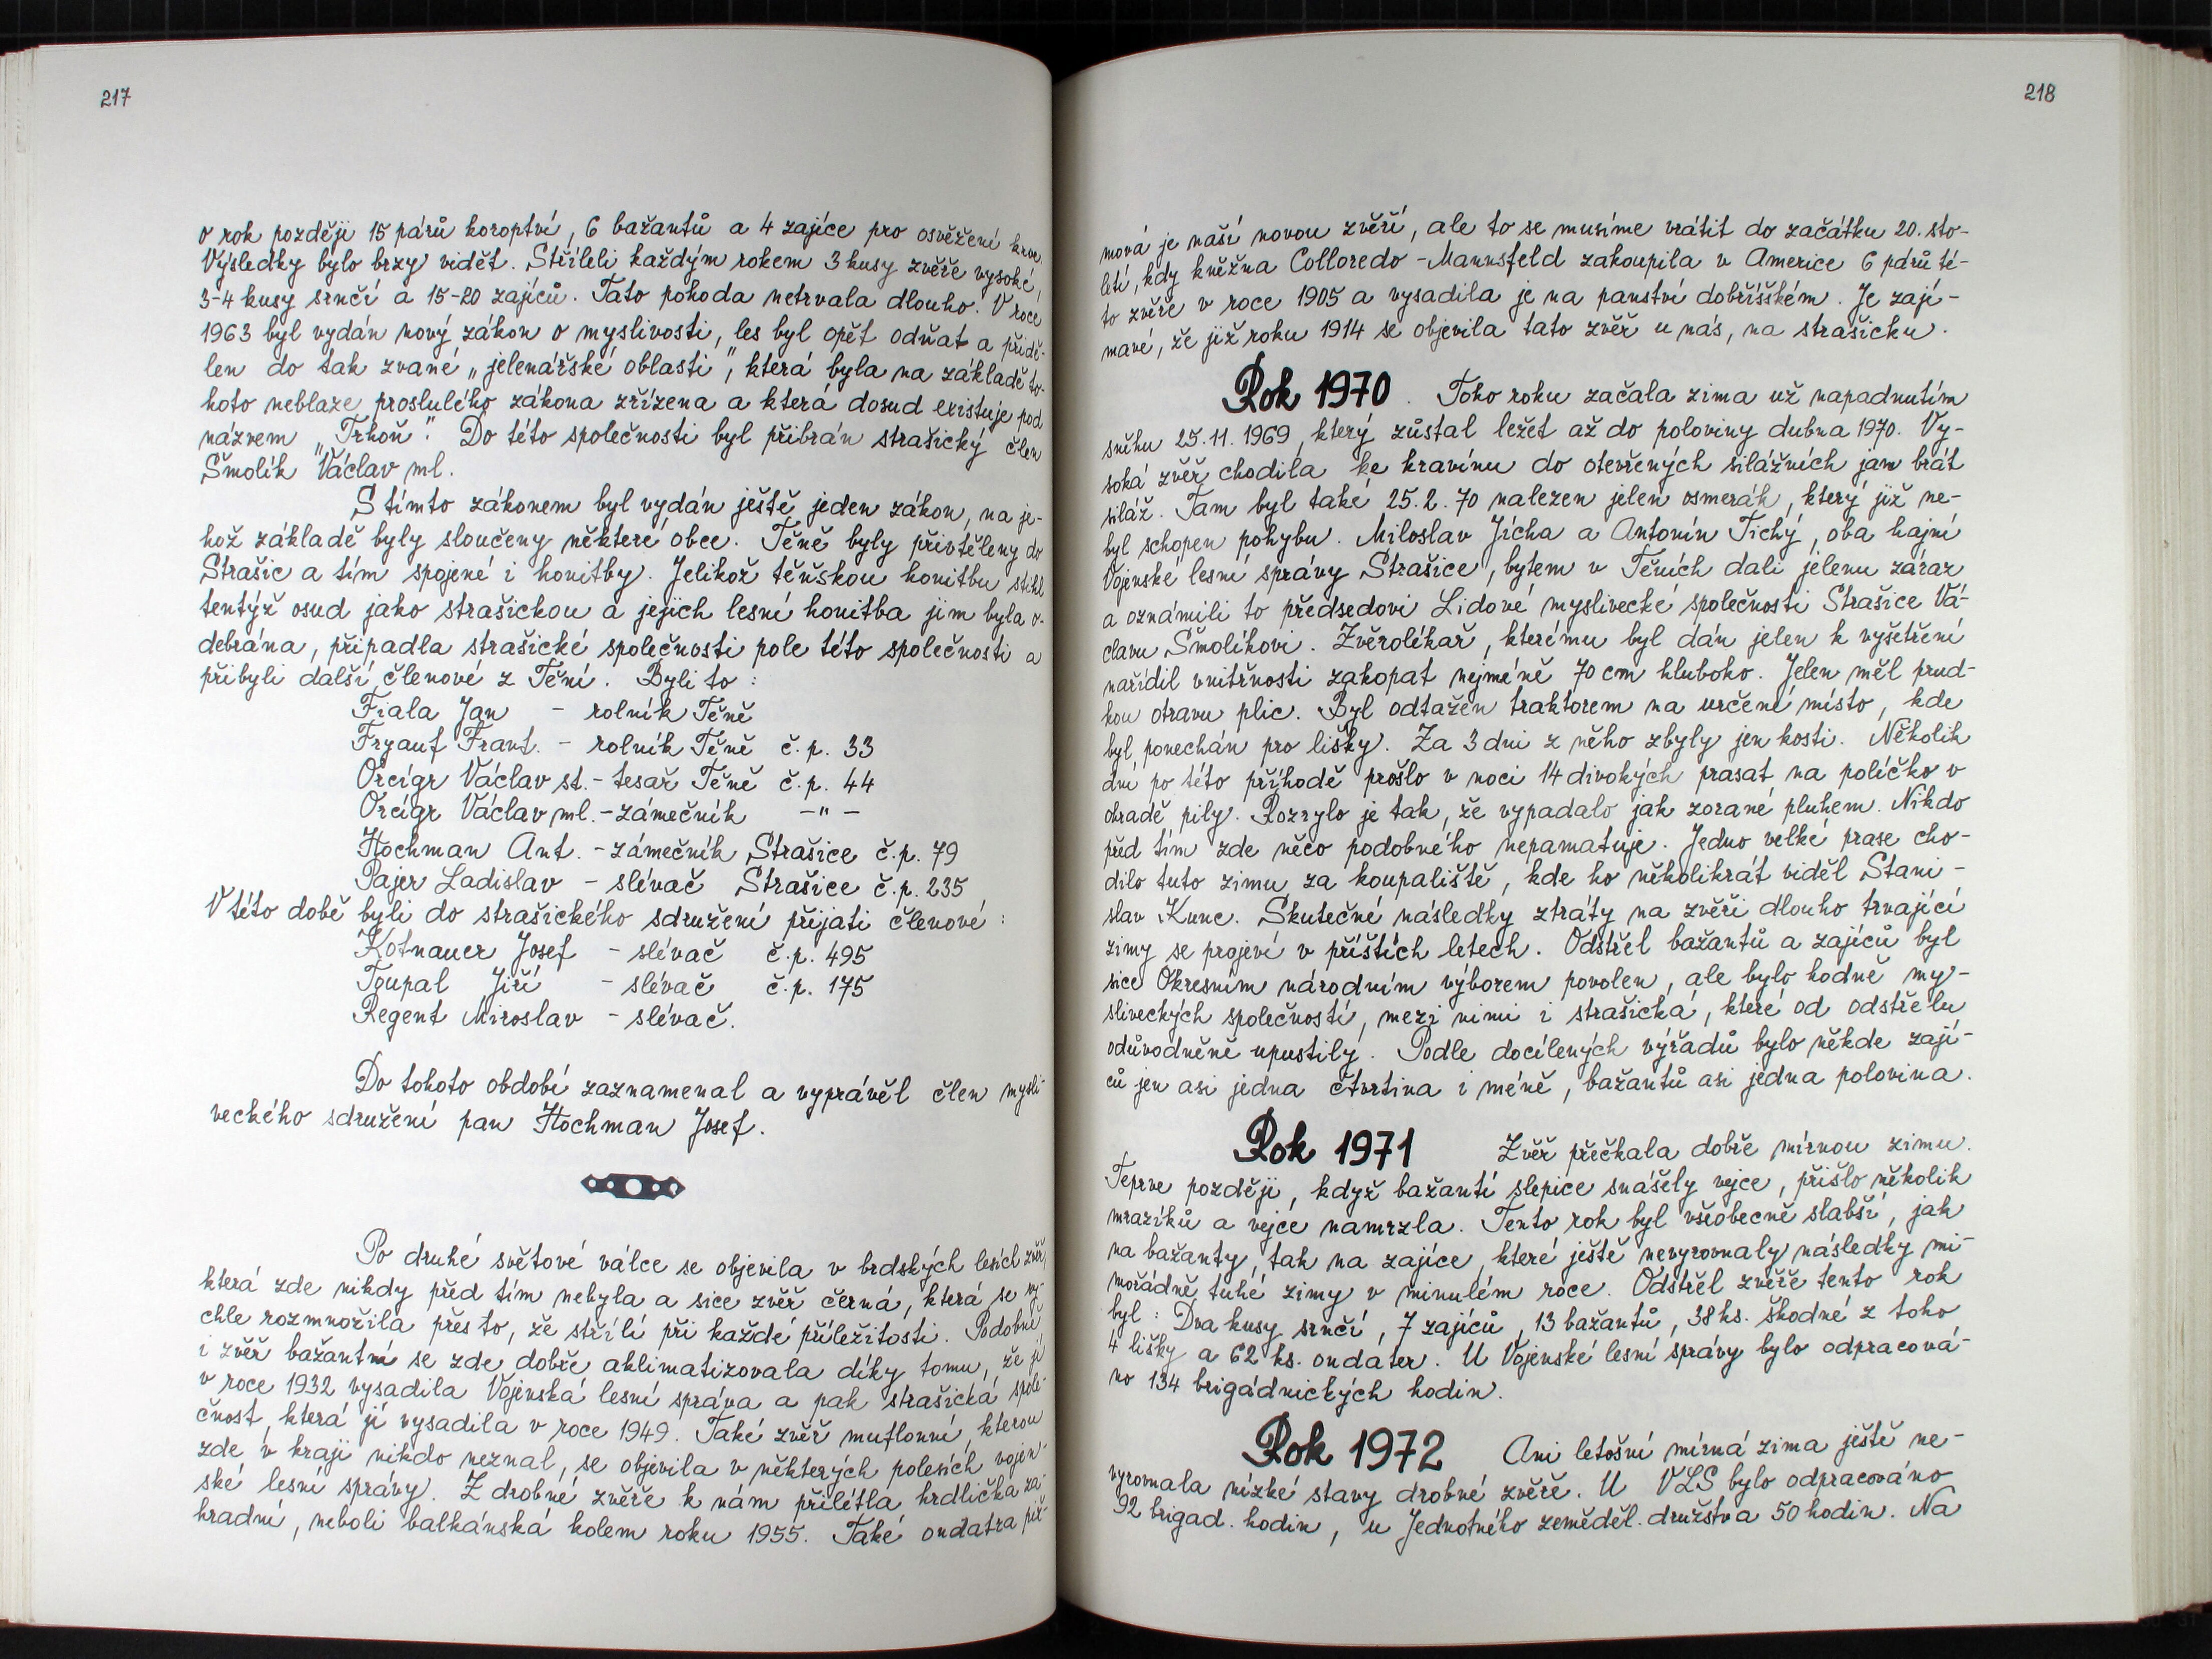 217
o rok později 15 párů koroptví, 6 bažantů a 4 zajíce pro osvěžení krve.
Výsledky bylo brzy vidět. Stříleli každým rokem 3 kusy zvěře vysoké,
3-4 kusy srnčí a 15-20 zajíců. Tato pohoda netrvala dlouho. V roce
1963 byl vydán nový zákon o myslivosti, les byl opět odňat a přidě-
len do tak zvané „jelenářské oblasti", která byla na základě to-
hoto neblaze proslulého zákona zřízena a která dosud existuje pod
názvem „Trhoň". Do této společnosti byl přibrán strašický člen
Šmolík Václav ml.
S tímto zákonem byl vydán ještě jeden zákon, na je-
hož základě byly sloučeny některé obce. Těně byly přivtěleny do
Strašic a tím spojené i honitby. Jelikož těňskou honitbu stihl
tentýž osud jako strašickou a jejich lesní honitba jim byla o-
debrána, připadla strašické společnosti pole této společnosti a
přibyli další členové z Tění. Byli to:
Fiala Jan - rolník Těně
Frgauf Frant. - rolník Těně č.p. 33
Orcígr Václav st. - tesař Těně č.p. 44
Orcígr Václav ml. - zámečník -"-
Hochman Ant. - zámečník Strašice č.p. 79
Pajer Ladislav - slévač Strašice č.p. 235
V této době byli do strašického sdružení přijati členové:
Kotnauer Josef - slévač č.p. 495
Toupal Jiří - slévač č.p. 175
Regent Miroslav - slévač.
Do tohoto období zaznamenal a vyprávěl člen mysli-
veckého sdružení pan Hochman Josef.
Po druhé světové válce se objevila v brdských lesích zvěř,
která zde nikdy před tím nebyla a sice zvěř černá, která se ry-
chle rozmnožila přes to, že střílí při každé příležitosti. Podobně
i zvěř bažantní se zde dobře aklimatizovala díky tomu, že ji
v roce 1932 vysadila Vojenská lesní správa a pak strašická spole-
čnost, která jí vysadila v roce 1949. Také zvěř muflonní, kterou
zde v kraji nikdo neznal, se objevila v některých polesích vojen-
ské lesní správy. Z drobné zvěře k nám přilétla hrdlička za-
hradní, neboli balkánská kolem roku 1955. Také ondatra piž-
218
mová je naší novou zvěří, ale to se musíme vrátit do začátku 20. sto-
letí, kdy kněžna Colloredo-Mannsfeld zakoupila v Americe 6 párů té-
to zvěře v roce 1905 a vysadila je na panství dobříšském. Je zají-
mavé, že již roku 1914 se objevila tato zvěř u nás, na strašicku.
Rok 1970. Toho roku začala zima už napadnutím
sněhu 25.11.1969, který zůstal ležet až do poloviny dubna 1970. Vy-
soká zvěř chodila ke kravínu do otevřených silážních jam brát
siláž. Tam byl také 25.2.70 nalezen jelen osmerák, který již ne-
byl schopen pohybu. Miloslav Jícha a Antonín Tichý, oba hajní
Vojenské lesní správy Strašice, bytem v Těních dali jelenu záraz
a oznámili to předsedovi Lidové myslivecké společnosti Strašice Vá-
clavu Šmolíkovi. Zvěrolékař, kterému byl dán jelen k vyšetření
nařídil vnitřnosti zakopat nejméně 70 cm hluboko. Jelen měl prud-
kou otravu plic. Byl odtažen traktorem na určené místo, kde
byl ponechán pro lišky. Za 3 dni z něho zbyly jen kosti. Několik
dní po této příhodě prošlo v noci 14 divokých prasat na políčko v
ohradě pily. Rozrylo je tak, že vypadalo jak zorané pluhem. Nikdo
před tím zde něco podobného nepamatuje. Jedno velké prase cho-
dilo tuto zimu za koupaliště, kde ho několikrát viděl Stani-
slav Kunc. Skutečné následky ztráty na zvěři dlouho trvající
zimy se projeví v příštích letech. Odstřel bažantů a zajíců byl
sice Okresním národním výborem povolen, ale bylo hodně my-
sliveckých společností, mezi nimi i strašická, které od odstřelu
odůvodněně upustily. Podle docílených výřadů bylo někde zají-
ců jen asi jedna čtvrtina i méně, bažantů asi jedna polovina.
Rok 1971 Zvěř přečkala dobře mírnou zimu.
Teprve později, když bažantí slepice snášely vejce, přišlo několik
mrazíků a vejce namrzla. Tento rok byl všeobecně slabší, jak
na bažanty, tak na zajíce, které ještě nevyrovnaly následky mi-
mořádně tuhé zimy v minulém roce. Odstřel zvěře tento rok
byl: Dva kusy srnčí, 7 zajíců, 13 bažantů, 38 ks. škodné z toho
4 lišky a 62 ks. ondater. U Vojenské lesní správy bylo odpracová-
no 134 brigádnických hodin.
Rok 1972 Ani letošní mírná zima ještě ne-
vyrovnala nízké stavy drobné zvěře. U VLS bylo odpracováno
92 brigad. hodin, u Jednotného zeměděl. družstva 50 hodin. Na